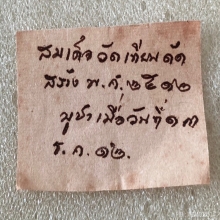 สมเด็จ วัดเทียนดัด
สร้าง พ.ศ. ๒๕๑๒
บูชาเมื่อวันที่ ๑๓
ธ.ค. ๑๒.